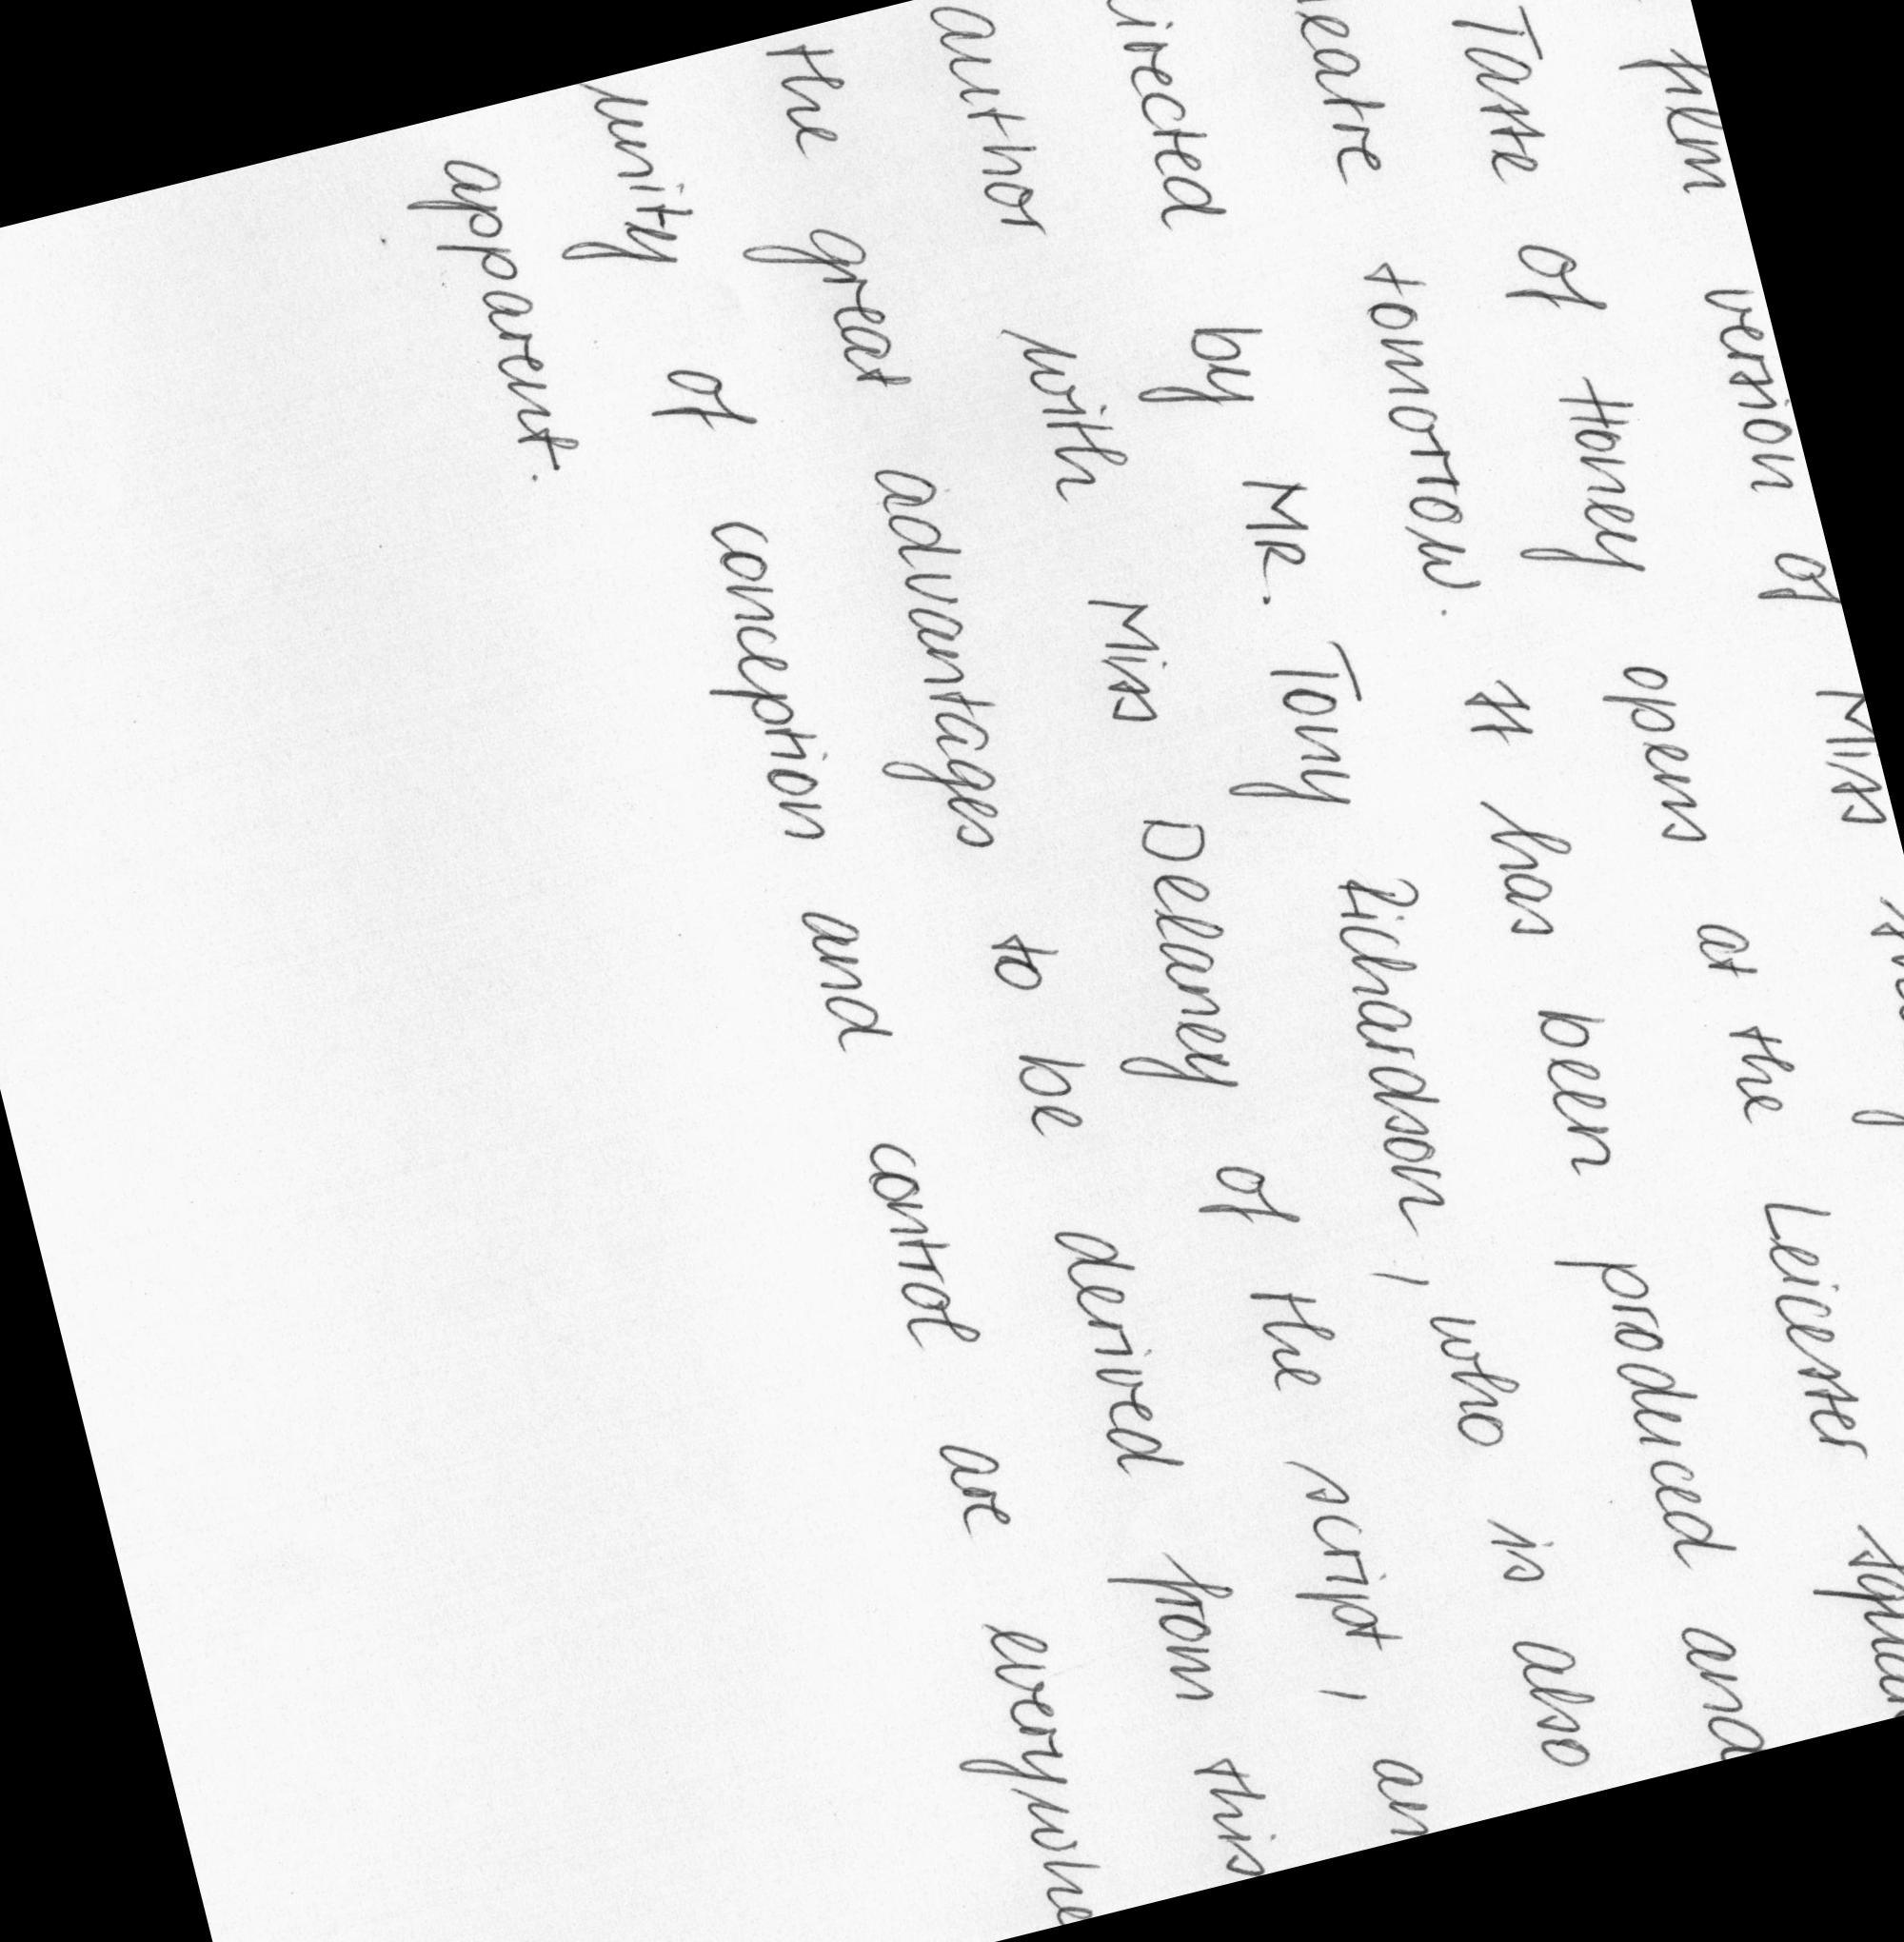 film version of Miss
Taste of Honey opens at the Leicester
eatre tomorrow. It has been produced and
irected by Mr. Tony Richardson, who is also
author with Miss Delaney of the script, an
the great advantages to be derived from this
unity of conception and control are everywhe
apparent.